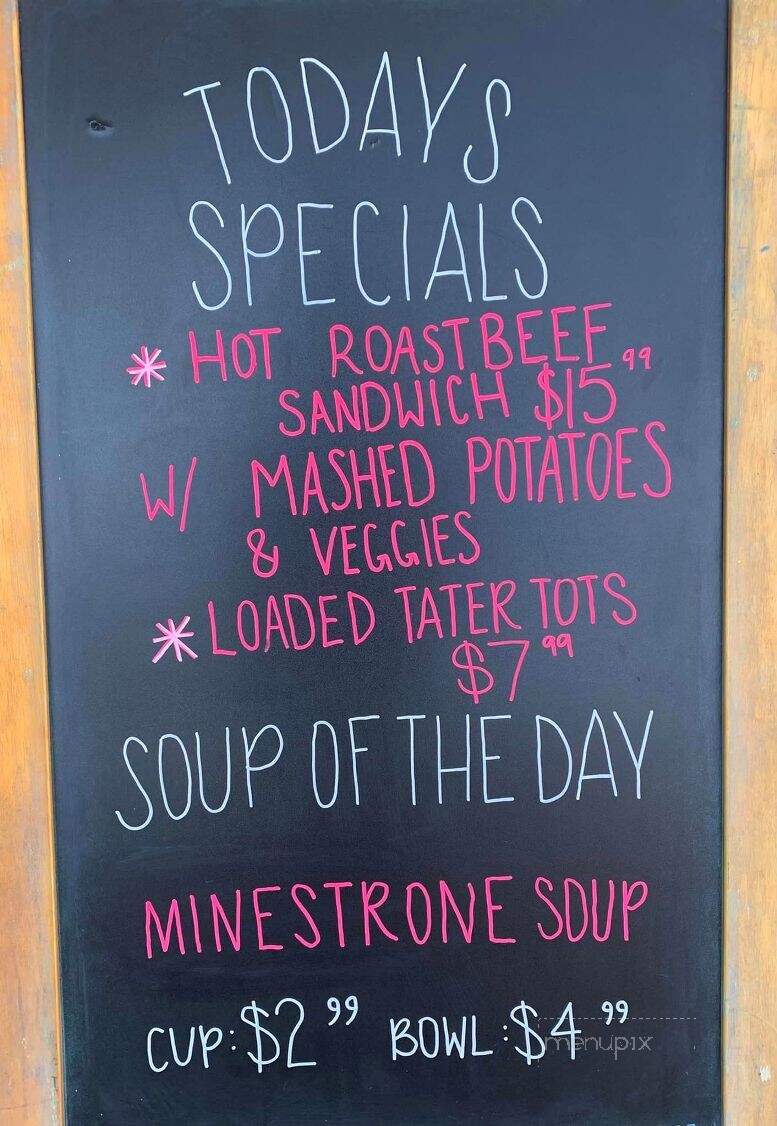 TODAYS
SPECIALS
* HOT ROAST BEEF
SANDWICH $15.99
W/ MASHED POTATOES
& VEGGIES
* LOADED TATER TOTS
$7.99
SOUP OF THE DAY
MINESTRONE SOUP
CUP: $2.99 BOWL: $4.99
menupix